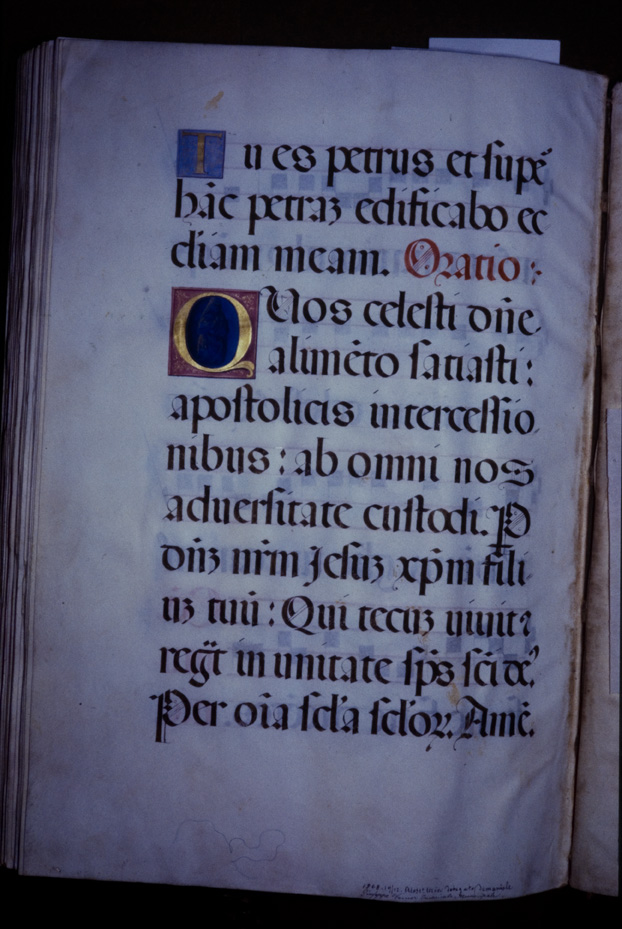 Tu es petrus et supẽ
hãc petraʒ edificabo ec
cliam meam. Oratio:
QUos celesti dñe
alimẽto satiasti:
apostolicis intercessio
nibus: ab omni nos
aduersitate custodi. P
dñʒ nr̃m Jesuʒ xp̃m fili
uʒ tuũ: Qui tecuʒ uiuit ⁊
regt̃ in unitate sp̃s sc̃i dẽ.
Per oĩa scl̃a scl̃oꝝ. Amẽ.